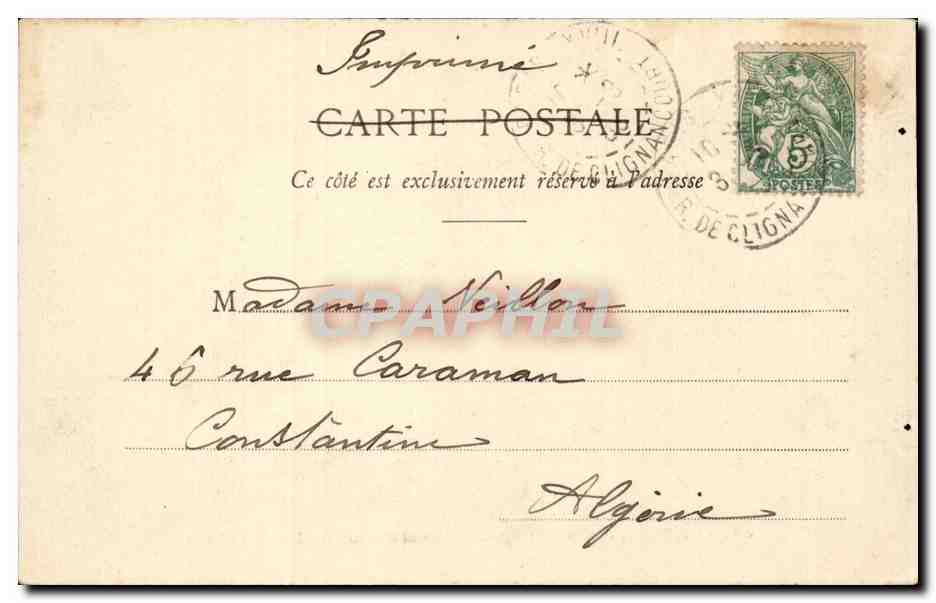 Imprimé
CARTE POSTALE
Ce côté est exclusivement réservé à l'adresse
R. DE CLIGNANCOURT
R. DE CLIGNA
10
5
POSTES
Madame Veillon
CPAPHIL
46 rue Caraman
Constantine
Algérie